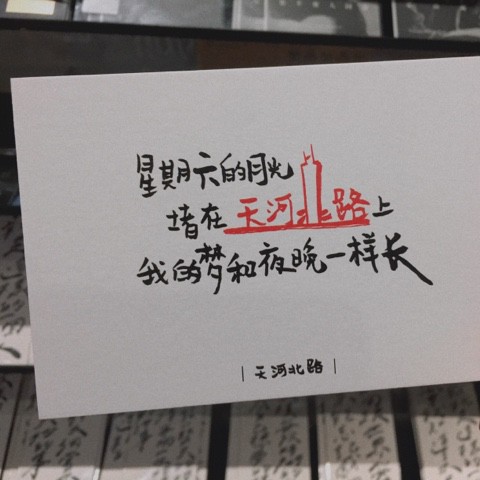 星期六的月光
堵在天河北路上
我的梦和夜晚一样长
|天河北路|